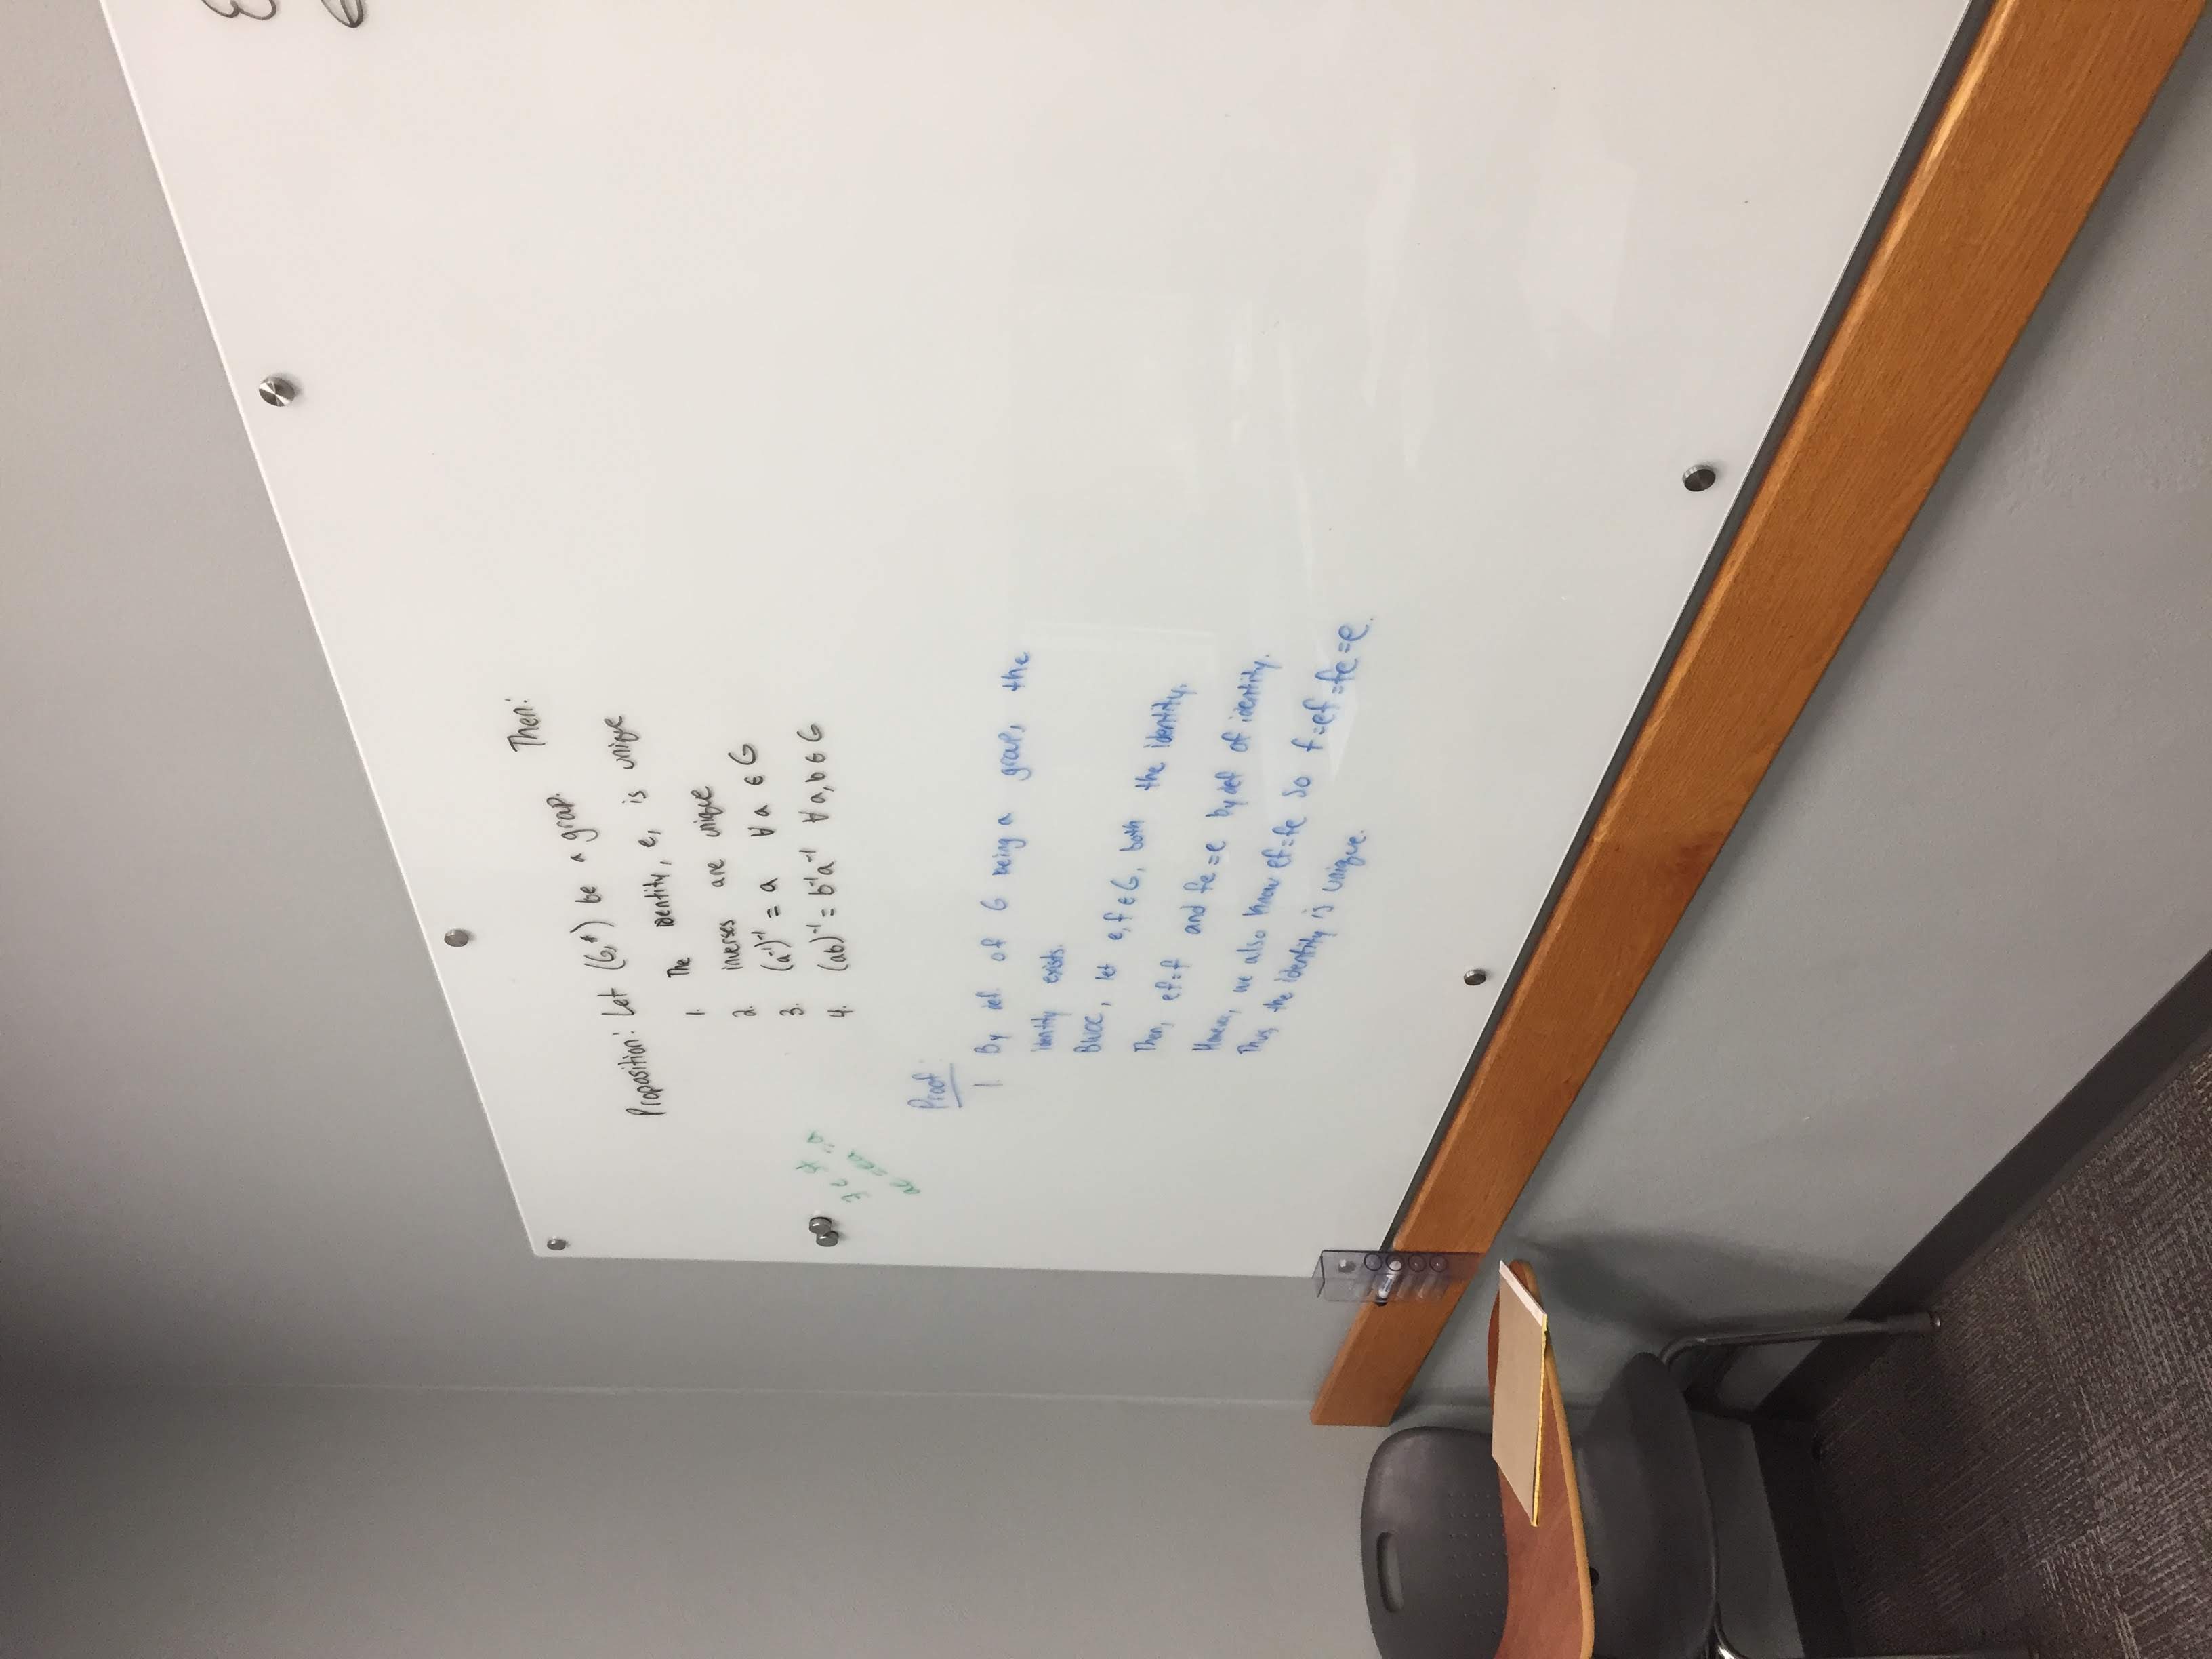 Proposition: Let (G,*) be a group. Then:
1. The identity, e, is unique
2. inverses are unique
3. (a⁻¹)⁻¹ = a ∀ a ∈ G
4. (ab)⁻¹ = b⁻¹a⁻¹ ∀ a,b ∈ G
∃ e st
ae = ea = a
Proof:
1. By def. of G being a group, the
identity exists.
BWOC, let e,f ∈ G, both the identity.
Then, ef=f and fe=e by def of identity.
However, we also know ef=fe so f=ef=fe=e.
Thus, the identity is unique.